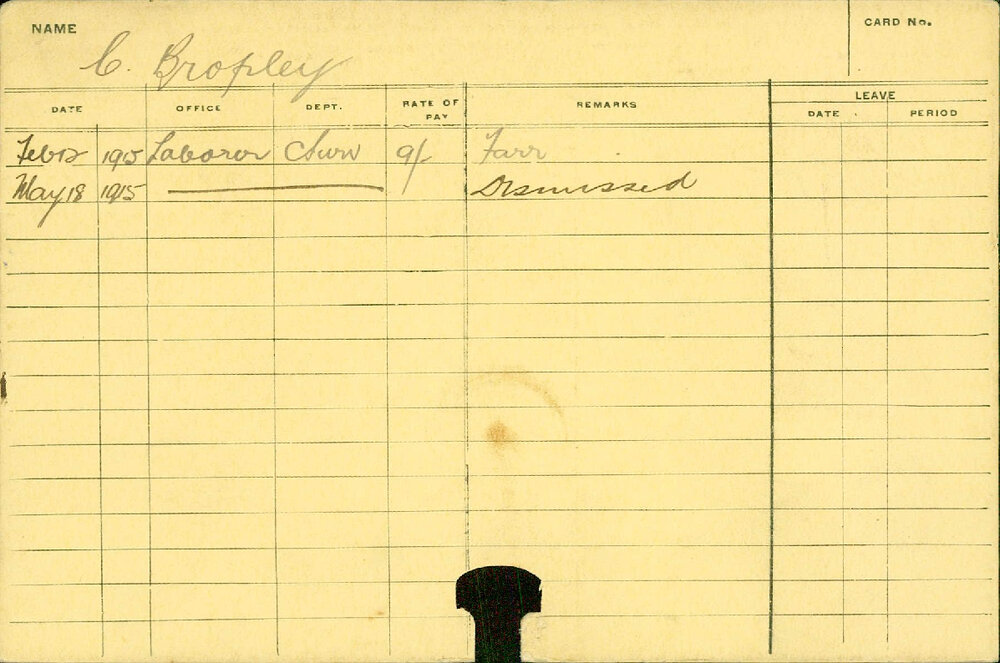 NAME
C. Bropley
CARD No.
DATE OFFICE DEPT. RATE OF PAY REMARKS LEAVE
DATE PERIOD
Feb 12 1915 Laborer 9/ Farr
May 18 1915 Dismissed